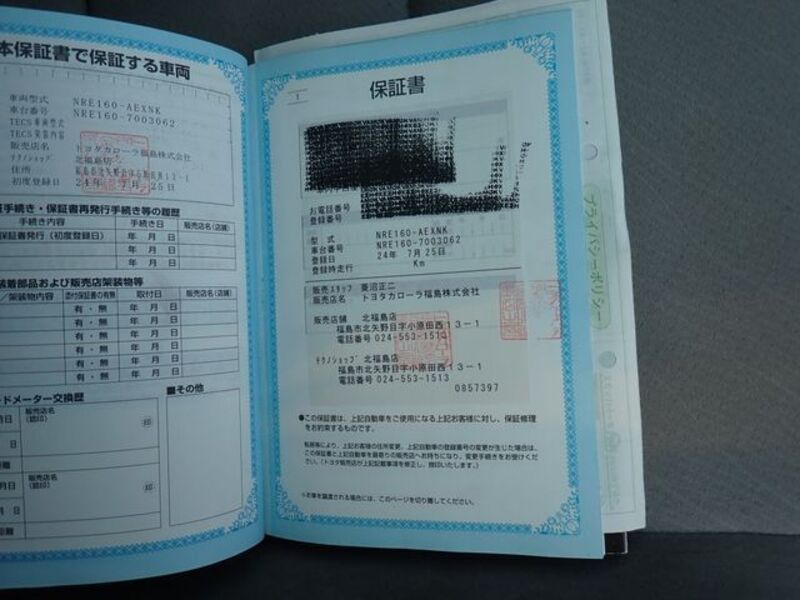 本保証書で保証する車両
車両型式 NRE160-AEXNK
車台番号 NRE160-7003062
TECS車両型式
TECS架装内容
販売店名 トヨタカローラ福島株式会社
テクノショップ 北福島店
住所
初度登録日 24年 7月 25日
証手続き・保証書再発行手続き等の履歴
手続き内容 手続き日 販売店名(店舗)
保証書発行(初度登録日) 年 月 日
年 月 日
年 月 日
装着部品および販売店架装物等
/架装物内容 添付保証書の有無 取付日 販売店名(店舗)
有・無 年 月 日
有・無 年 月 日
有・無 年 月 日
有・無 年 月 日
有・無 年 月 日
有・無 年 月 日
ドメーター交換歴
販売店名
(認印)
印
販売店名
(認印)
印
■その他
保証書
お電話番号
登録番号
型 式 NRE160-AEXNK
車台番号 NRE160-7003062
登録日 24年 7月 25日
登録時走行 Km
販売スタッフ 菱沼正二
販売店名 トヨタカローラ福島株式会社
販売店舗 北福島店
福島市北矢野目字小原田西13-1
電話番号 024-553-1513
テクノショップ 北福島店
福島市北矢野目字小原田西13-1
電話番号 024-553-1513
0857397
●この保証書は、上記自動車をご使用になる上記お客様に対し、保証修理
をお約束するものです。
転居等により、上記お客様の住所変更、上記自動車の登録番号の変更が生じた場合は、
この保証書と上記自動車を最寄りの販売店へお持ちになり、変更手続きをお受けくだ
さい。(トヨタ販売店が上記記載事項を修正し、捺印いたします。)
※お車を譲渡される場合には、このページを切り離してください。
プライバシーポリシー